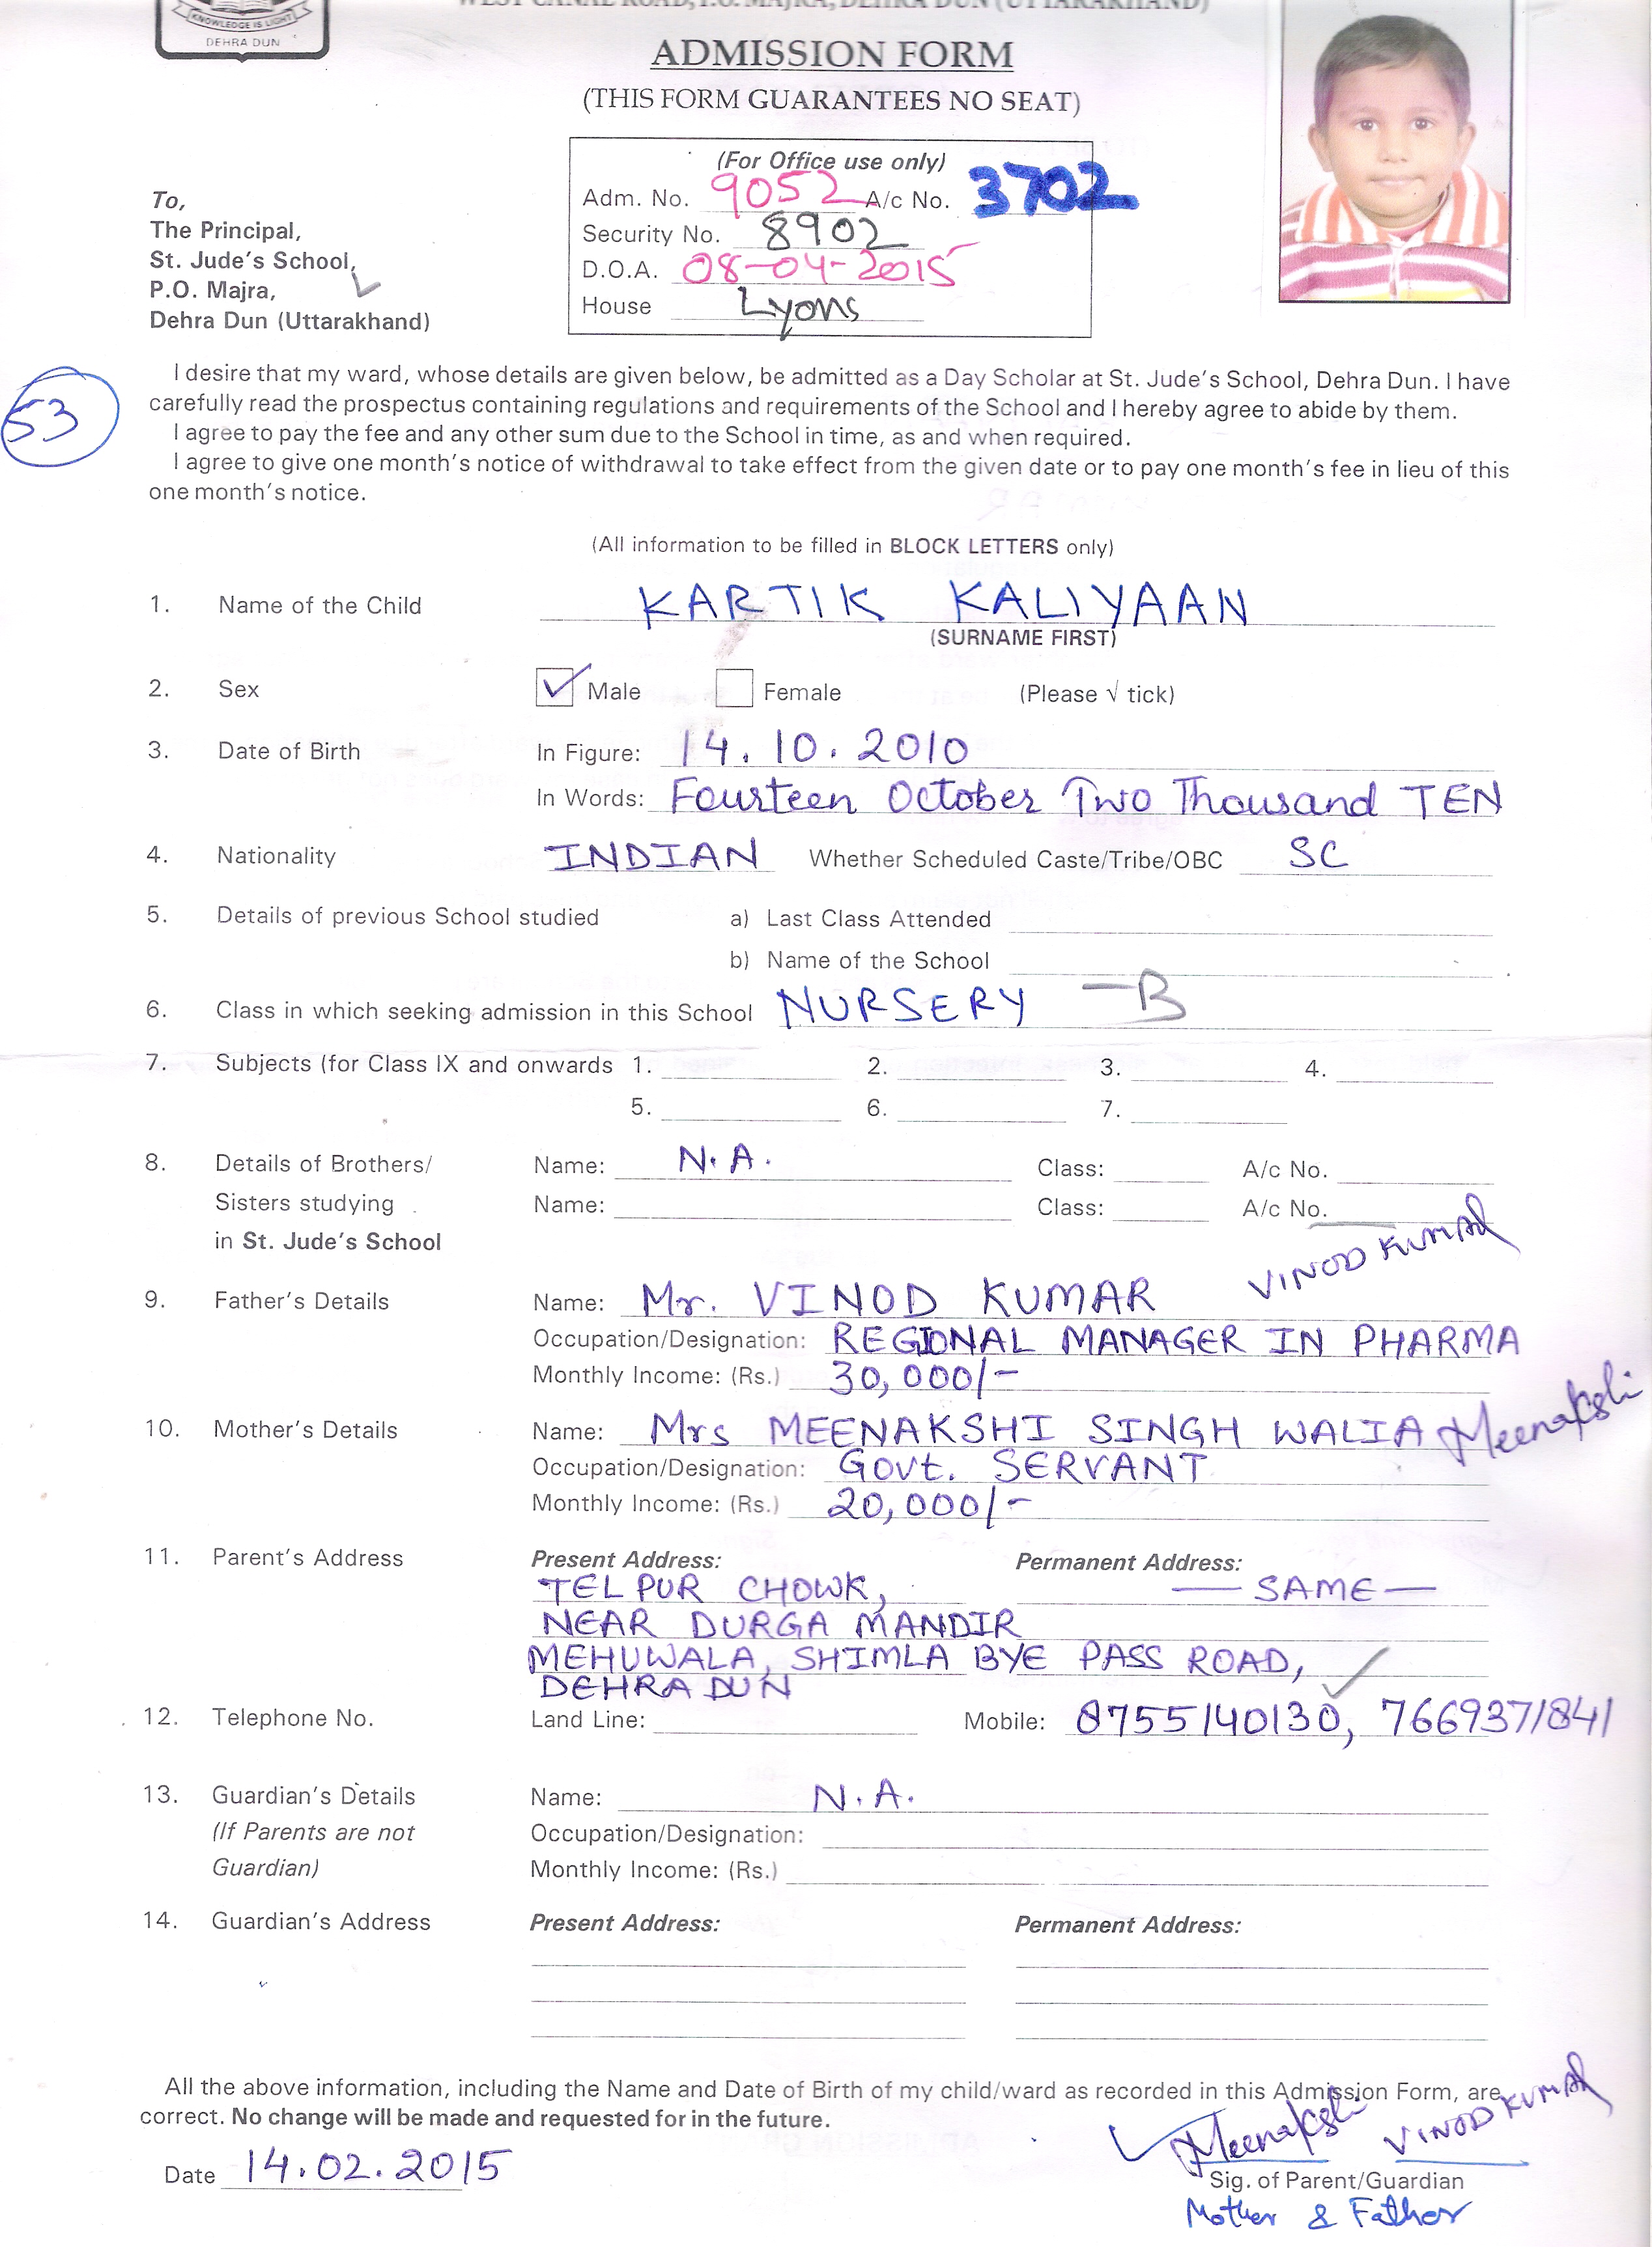 KNOWLEDGE IS LIGHT
DEHRA DUN
WEST CANAL ROAD, P.O. MAJRA, DEHRA DUN (UTTARAKHAND)
ADMISSION FORM
(THIS FORM GUARANTEES NO SEAT)
(For Office use only)
Adm. No. 9052 A/c No. 3702
Security No. 8902
D.O.A. 08-04-2015
House Lyons
To,
The Principal,
St. Jude's School,
P.O. Majra,
Dehra Dun (Uttarakhand)
53
I desire that my ward, whose details are given below, be admitted as a Day Scholar at St. Jude's School, Dehra Dun. I have
carefully read the prospectus containing regulations and requirements of the School and I hereby agree to abide by them.
I agree to pay the fee and any other sum due to the School in time, as and when required.
I agree to give one month's notice of withdrawal to take effect from the given date or to pay one month's fee in lieu of this
one month's notice.
(All information to be filled in BLOCK LETTERS only)
1. Name of the Child KARTIK KALIYAAN
(SURNAME FIRST)
2. Sex ✓ Male Female (Please √ tick)
3. Date of Birth In Figure: 14.10.2010
In Words: Fourteen October Two Thousand TEN
4. Nationality INDIAN Whether Scheduled Caste/Tribe/OBC SC
5. Details of previous School studied a) Last Class Attended
b) Name of the School
6. Class in which seeking admission in this School NURSERY - B
7. Subjects (for Class IX and onwards 1. 2. 3. 4.
5. 6. 7.
8. Details of Brothers/ Name: N.A. Class: A/c No.
Sisters studying Name: Class: A/c No.
in St. Jude's School
VINOD KUMAR
9. Father's Details Name: Mr. VINOD KUMAR
Occupation/Designation: REGIONAL MANAGER IN PHARMA
Monthly Income: (Rs.) 30,000/-
10. Mother's Details Name: Mrs MEENAKSHI SINGH WALIA Meenakshi
Occupation/Designation: Govt. SERVANT
Monthly Income: (Rs.) 20,000/-
11. Parent's Address Present Address: Permanent Address:
TELPUR CHOWK, — SAME —
NEAR DURGA MANDIR
MEHUWALA, SHIMLA BYE PASS ROAD,
DEHRADUN
12. Telephone No. Land Line: Mobile: 8755140130, 7669371841
13. Guardian's Details Name: N.A.
(If Parents are not Occupation/Designation:
Guardian) Monthly Income: (Rs.)
14. Guardian's Address Present Address: Permanent Address:
All the above information, including the Name and Date of Birth of my child/ward as recorded in this Admission Form, are
correct. No change will be made and requested for in the future.
Meenakshi VINOD KUMAR
Date 14.02.2015
Sig. of Parent/Guardian
Mother & Father